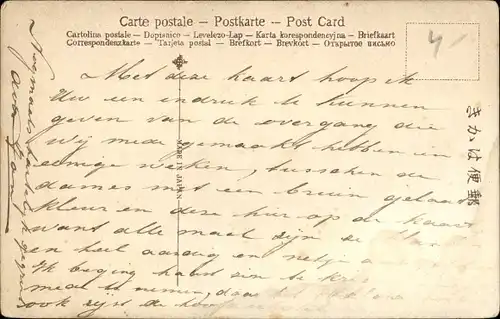 Carte postale – Postkarte – Post Card
Cartolina postale – Dopisnice – Levelezo-Lap – Karta korespondencyjna – Briefkaart
Correspondenzkarte – Tarjeta postal – Brefkort – Brevkort – Открытое письмо
4
Met deze kaart hoop ik
Uw een indruk te kunnen
geven van de overgang die
wij mede gemaakt hebben in
eenige weken, tusschen de
dames met een bruin gelaat
kleur en deze hier op de kaart
want alle maal zijn ze
en heel aardig en netjes
Ik begin haast zin te
mede te nemen, daar het
ook rijst de
Nogmaals hartelijk gegroet
MADE IN JAPAN
きかは便郵